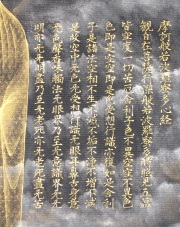 摩訶般若波羅蜜多心経
観自在菩薩行深般若波羅蜜多時照見五蘊
皆空度一切苦厄舎利子色不異空空不異色
色即是空空即是色受想行識亦復如是舎利
子是諸法空相不生不滅不垢不浄不増不減
是故空中无色无受想行識无眼耳鼻舌身意
无色聲香味觸法无眼界乃至无意識界无无
明亦无无明盡乃至无老死亦无老死盡无苦